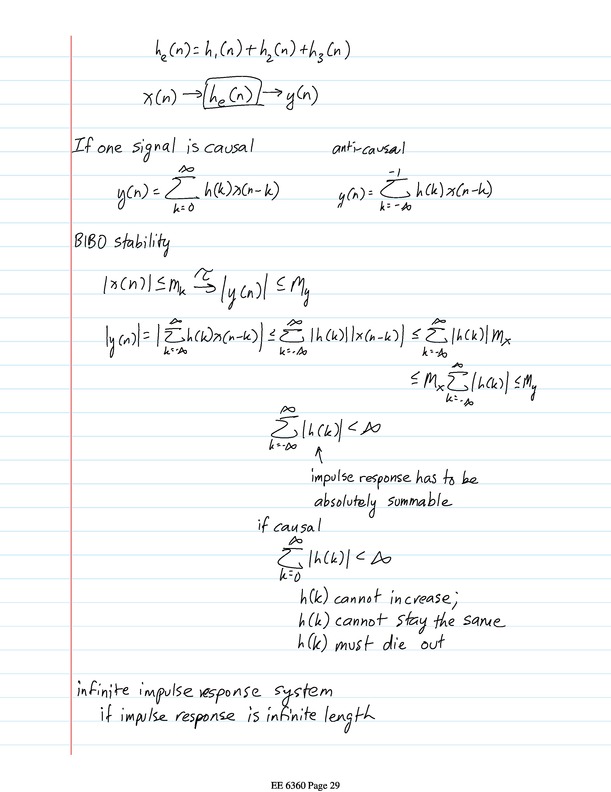 hₑ(n) = h₁(n) + h₂(n) + h₃(n)
x(n) → [hₑ(n)] → y(n)
If one signal is causal    anti-causal
y(n) = ∑_{k=0}^{∞} h(k)x(n-k)    y(n) = ∑_{k=-∞}^{-1} h(k)x(n-k)
BIBO stability
|x(n)| ≤ Mₖ →^τ |y(n)| ≤ M_y
|y(n)| = |∑_{k=-∞}^{∞} h(k)x(n-k)| ≤ ∑_{k=-∞}^{∞} |h(k)||x(n-k)| ≤ ∑_{k=-∞}^{∞} |h(k)| Mₓ
≤ Mₓ ∑_{k=-∞}^{∞} |h(k)| ≤ M_y
∑_{k=-∞}^{∞} |h(k)| < ∞
↑
impulse response has to be
absolutely summable
if causal
∑_{k=0}^{∞} |h(k)| < ∞
h(k) cannot increase;
h(k) cannot stay the same
h(k) must die out
infinite impulse response system
if impulse response is infinite length
EE 6360 Page 29